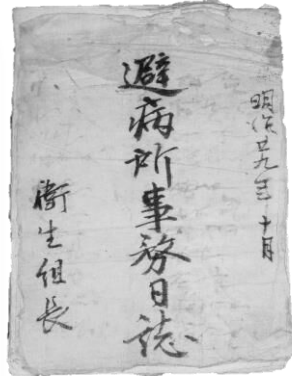 明治廿九年十月
避病所事務日誌
衛生組長